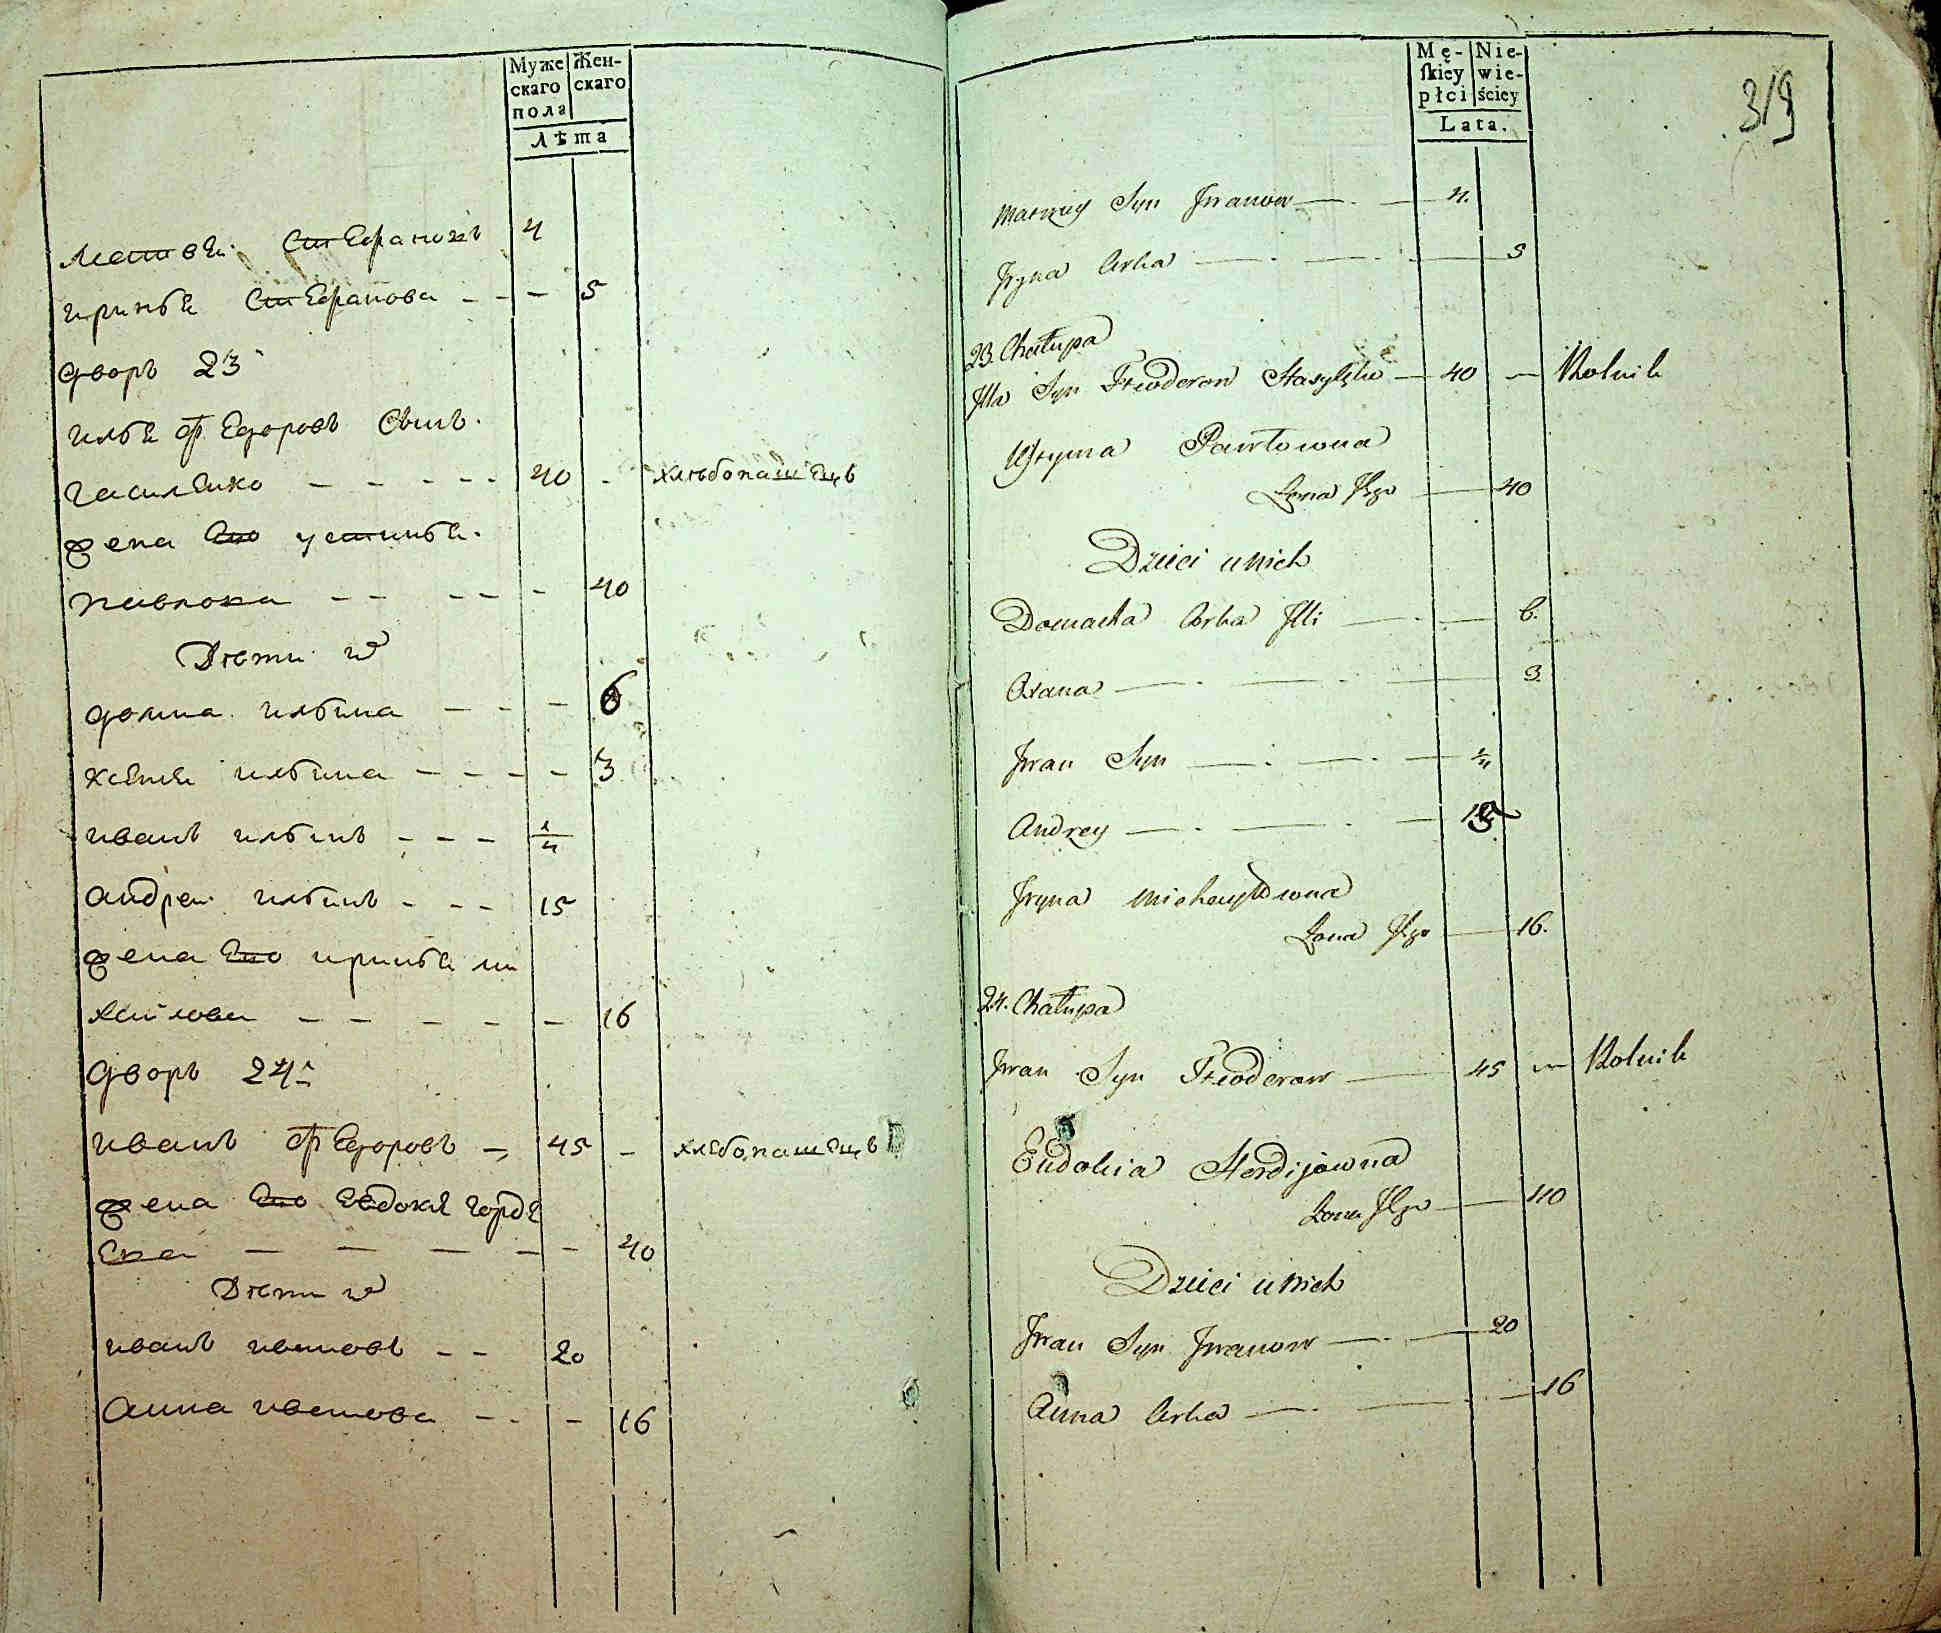 Муже
скаго
пола
Жен-
скаго
лѣта
Матвѣи Стефановъ 4
ирин꙯ѣ Стефанова - - - 5
дворъ 23
илья федоровъ сынъ
гасиленко - - - - - 40 - хлѣбопашецъ
жена его устинья
павлова - - - - - 40
Дѣти ихъ
домна ильина - - - 6
ксения ильина - - - - 3
иванъ ильинъ - - - 1/4
андреи ильинъ - - - 15
жена его иринья ми
хаилова - - - - - 16
дворъ 24
иванъ федоровъ - 45 - хлебопашецъ
жена его Евдокия горде
ева - - - - - 40
Дѣти ихъ
иванъ ивановъ - - 20
анна иванова - - - 16
Mę-
skiey
płci
Nie-
wie-
ściey
Lata.
319
Matwey Syn Iwanow 4.
Iryna Corka 5
23. Chałupa
Illa Syn Fteoderow Hasylęko 40 - Rolnik
Ustyma Pawłowna
Zona Jego 40
Dzieci u Nich
Domacka Corka Illi 6.
Oxana 3.
Iwan Syn 1/4
Andrey 15
Iryna Michayłowna
Zona Jego 16.
24. Chałupa
Iwan Syn Fteoderow 45 - Rolnik
Eudokia Hordijowna
Zona Jego 40
Dzieci u Nich
Iwan Syn Iwanow 20
Anna Corka 16